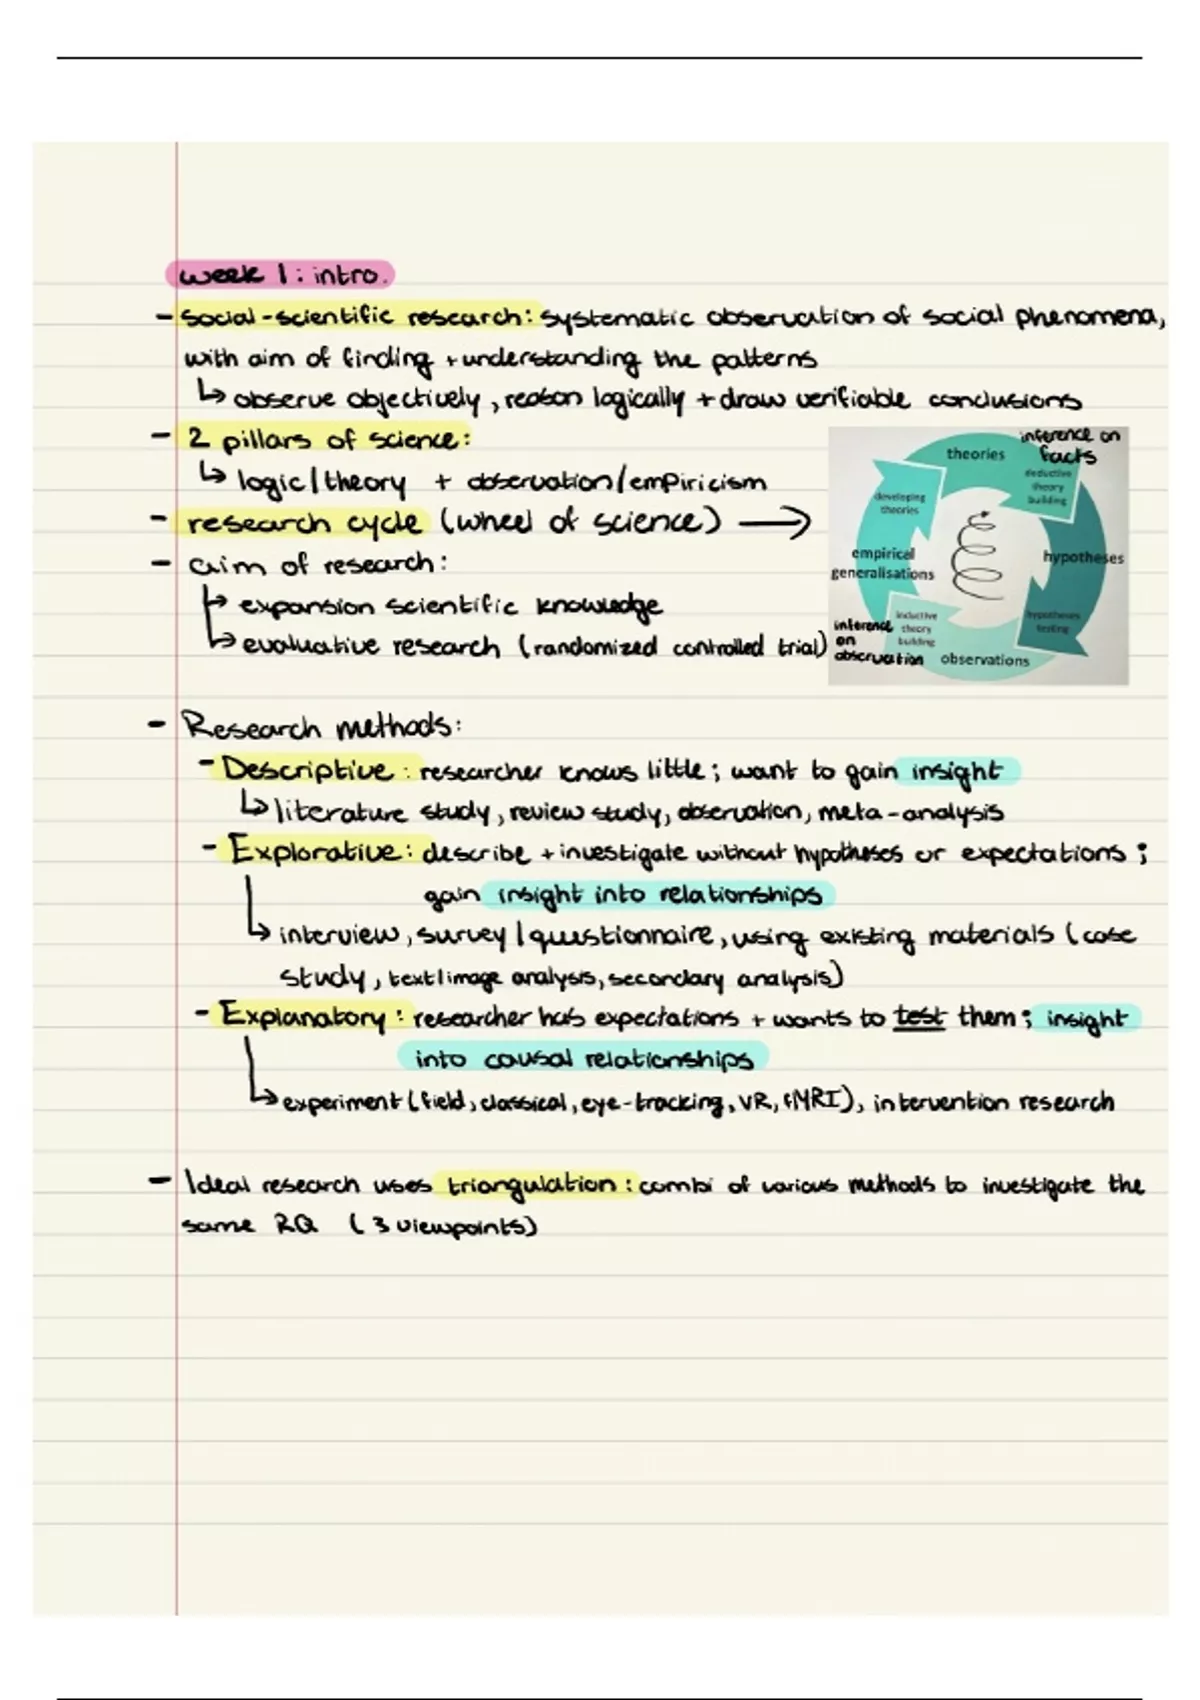 week 1: intro.
- social-scientific research: systematic observation of social phenomena,
with aim of finding + understanding the patterns
↳ observe objectively, reason logically + draw verifiable conclusions
- 2 pillars of science:
↳ logic/theory + observation/empiricism
- research cycle (wheel of science) →
- aim of research:
↳ expansion scientific knowledge
↳ evaluative research (randomized controlled trial)
inference on
facts
theories
deductive
theory
building
developing
theories
hypotheses
empirical
generalisations
hypotheses
testing
inductive
theory
building
inference
on
observation
observations
- Research methods:
- Descriptive: researcher knows little; want to gain insight
↳ literature study, review study, observation, meta-analysis
- Explorative: describe + investigate without hypotheses or expectations;
gain insight into relationships
↳ interview, survey/questionnaire, using existing materials (case
study, text/image analysis, secondary analysis)
- Explanatory: researcher has expectations + wants to test them; insight
into causal relationships
↳ experiment (field, classical, eye-tracking, VR, fMRI), intervention research
- Ideal research uses triangulation: combi of various methods to investigate the
same RQ (3 viewpoints)